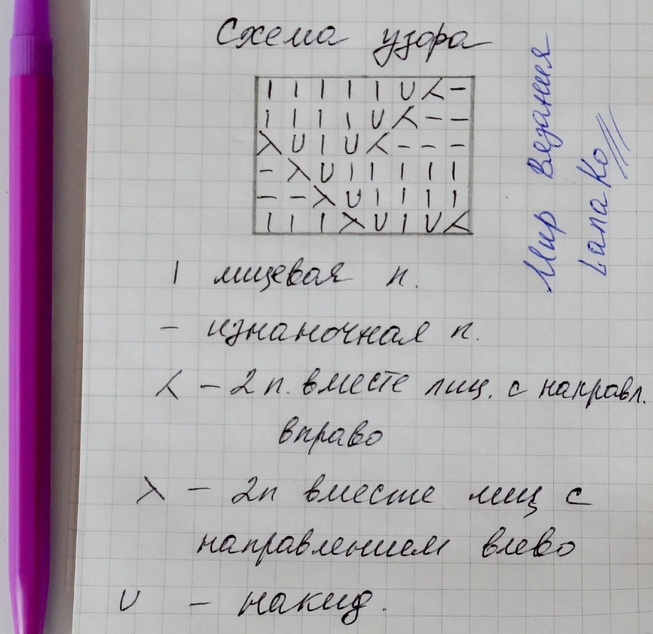 Схема узора
| | | | | U ⋌ –
| | | | U ⋌ – –
λ U | U ⋌ – – –
– λ U | | | | |
– – λ U | | | |
| | | λ U | U ⋌
| лицевая п.
– изнаночная п.
⋌ – 2 п. вместе лиц. с направл.
вправо
λ – 2п вместе лиц с
направлением влево
U – накид.
Мир Вязания
Lana Ko